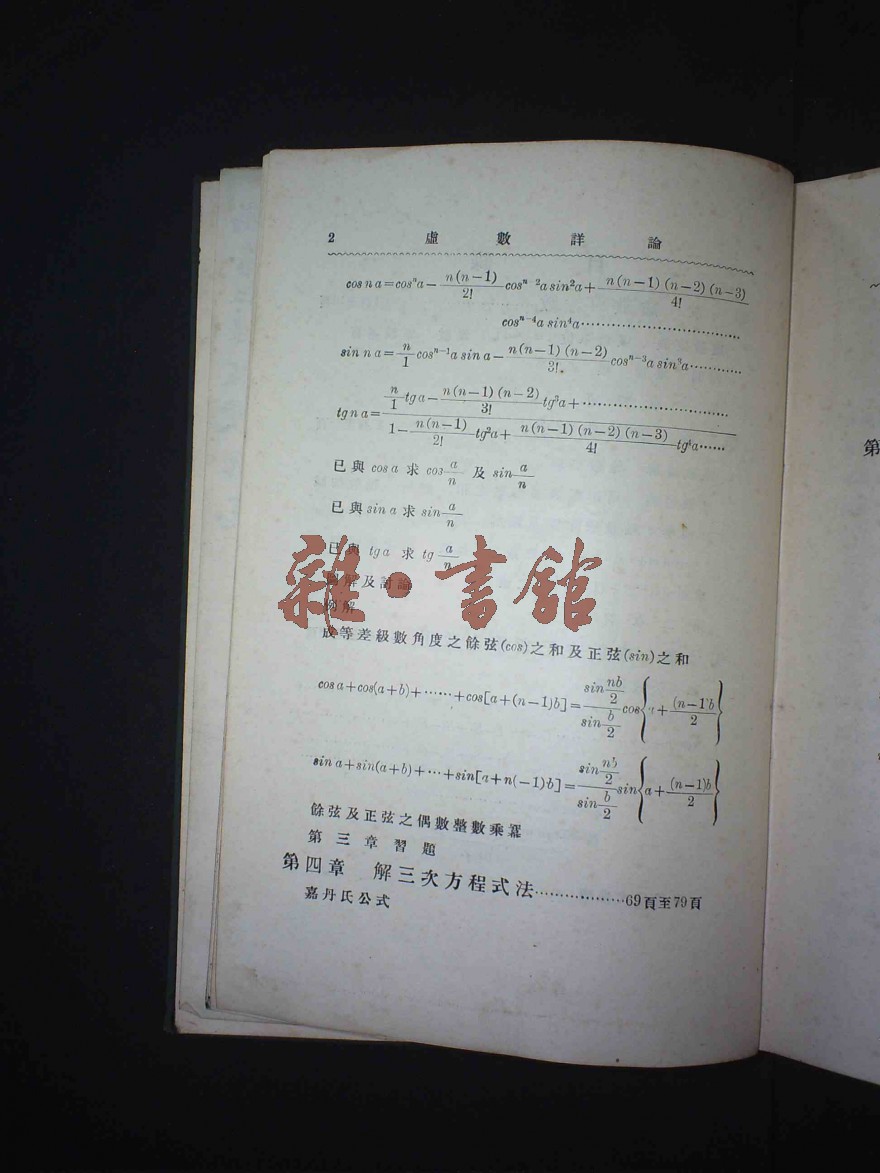 2 虛數詳論
cos n a=cosⁿa－n(n－1)/2! cosⁿ ²a sin²a＋n(n－1)(n－2)(n－3)/4!
cosⁿ⁻⁴a sin⁴a……………………………
sin n a=n/1 cosⁿ⁻¹a sin a－n(n－1)(n－2)/3! cosⁿ⁻³a sin³a…………
tg n a=(n/1 tg a－n(n－1)(n－2)/3! tg³a＋…………………………)/(1－n(n－1)/2! tg²a＋n(n－1)(n－2)(n－3)/4! tg⁴a……)
已與 cos a 求 cos a/n 及 sin a/n
已與 sin a 求 sin a/n
已與 tg a 求 tg a/n
圖解及討論
例解
雜·書館
成等差級數角度之餘弦(cos)之和及正弦(sin)之和
cos a＋cos(a＋b)＋……＋cos[a＋(n－1)b]=(sin nb/2)/(sin b/2) cos{a＋(n－1)b/2}
sin a＋sin(a＋b)＋…＋sin[a＋n(－1)b]=(sin nb/2)/(sin b/2) sin{a＋(n－1)b/2}
餘弦及正弦之偶數整數乘冪
第三章習題
第四章 解三次方程式法………………69頁至79頁
嘉丹氏公式
第